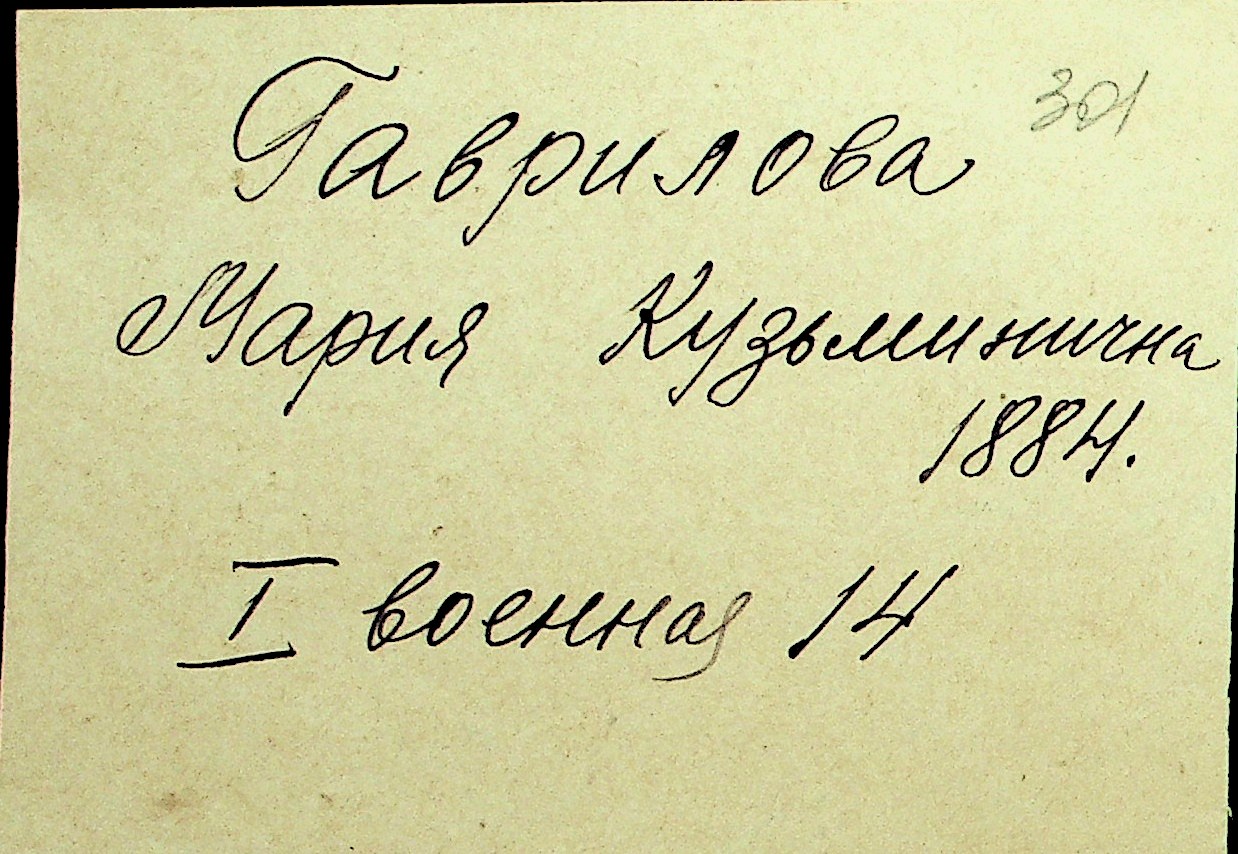 301
Гаврилова
Мария Кузьминична
1884.
I военная 14